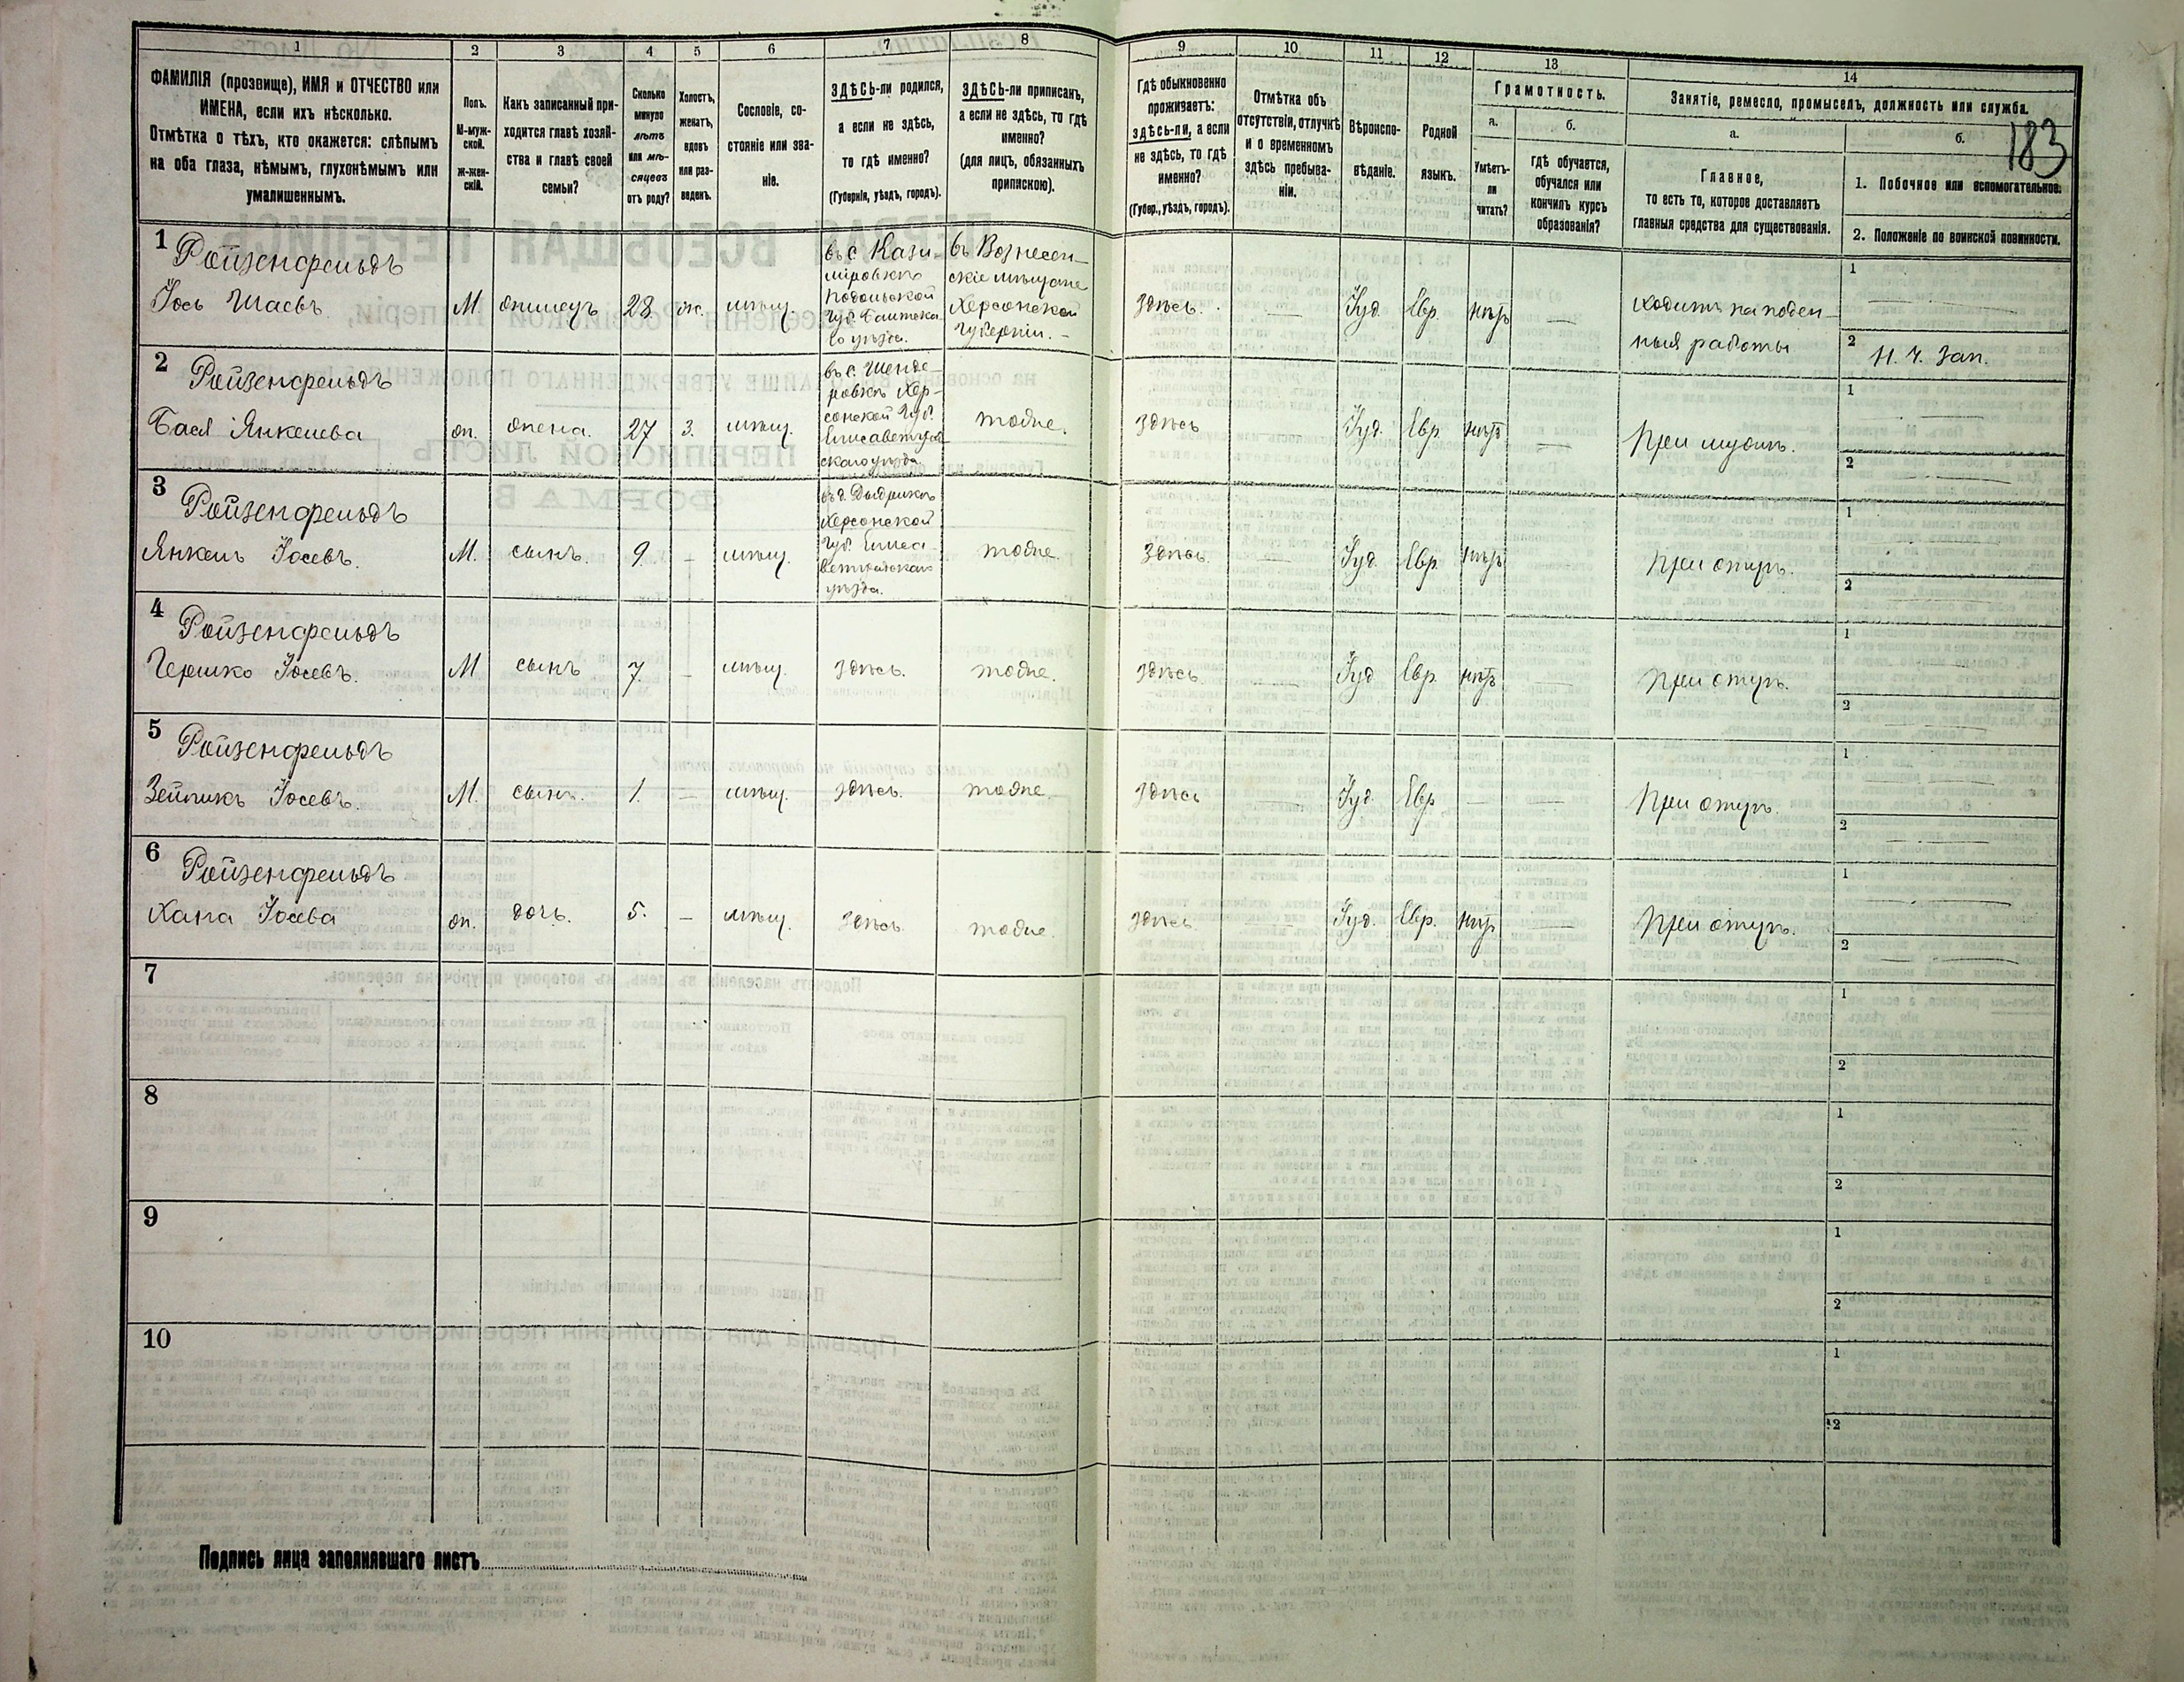 183
1 2 3 4 5 6 7 8 9 10 11 12 13 14
ФАМИЛІЯ (прозвище), ИМЯ и ОТЧЕСТВО или
ИМЕНА, если ихъ нѣсколько.
Отмѣтка о тѣхъ, кто окажется: слѣпымъ
на оба глаза, нѣмымъ, глухонѣмымъ или
умалишеннымъ.
Полъ.
М-муж-
ской.
Ж-жен-
скій.
Какъ записанный при-
ходится главѣ хозяй-
ства и главѣ своей
семьи?
Сколько
минуло
лѣтъ
или мѣ-
сяцевъ
отъ роду?
Холостъ,
женатъ,
вдовъ
или раз-
веденъ.
Сословіе, со-
стояніе или зва-
ніе.
ЗДѢСЬ-ли родился,
а если не здѣсь,
то гдѣ именно?
(Губернія, уѣздъ, городъ).
ЗДѢСЬ-ли приписанъ,
а если не здѣсь, то гдѣ
именно?
(для лицъ, обязанныхъ
припискою).
Гдѣ обыкновенно
проживаетъ:
здѣсь-ли, а если
не здѣсь, то гдѣ
именно?
(Губер., уѣздъ, городъ).
Отмѣтка объ
отсутствіи, отлучкѣ
и о временномъ
здѣсь пребыва-
ніи.
Вѣроиспо-
вѣданіе.
Родной
языкъ.
Грамотность.
а.
Умѣетъ-
ли
читать?
б.
гдѣ обучается,
обучался или
кончилъ курсъ
образованія?
Занятіе, ремесло, промыселъ, должность или служба.
а.
Главное,
то есть то, которое доставляетъ
главныя средства для существованія.
б.
1. Побочное или вспомогательное.
2. Положеніе по воинской повинности.
1 Ройзенфельдъ
Іось Шаевъ М. 28 ж. мѣщ.
въ с. Кази-
міровкѣ
Подольской
губ. Балтска-
го уѣзда.
въ Вознесен-
скіе мѣщане
Херсонской
губерніи. -
здѣсь. — Іуд. Евр. нѣтъ —
Ходитъ на поден-
ныя работы
1 —
2 Н. Ч. Зап.
2 Ройзенфельдъ
Бася Янкелева ж. жена. 27 З. мѣщ.
Херсонской губ.
Елисаветград-
скаго уѣзда
тоже. здѣсь — Іуд. Евр. нѣтъ — При мужѣ.
1 —
2 —
3 Ройзенфельдъ
Янкель Іосевъ. М. сынъ. 9. - мѣщ.
Херсонской
губ. Елиса-
ветградскаго
уѣзда.
тоже. здѣсь. — Іуд. Евр. нѣтъ — При отцѣ.
1 —
2 —
4 Ройзенфельдъ
Гершко Іосевъ. М. сынъ 7. - мѣщ. здѣсь. тоже. здѣсь. — Іуд. Евр. нѣтъ — При отцѣ.
1 —
2 —
5 Ройзенфельдъ
Зейликъ Іосевъ. М. сынъ. 1. — мѣщ. здѣсь. тоже. здѣсь — Іуд. Евр. — — При отцѣ.
1 —
2 —
6 Ройзенфельдъ
Хана Іосева ж. дочь. 5. — мѣщ. здѣсь. тоже. здѣсь. — Іуд. Евр. нѣтъ — При отцѣ.
1 —
2 —
7 1
2
8 1
2
9 1
2
10 1
2
Подпись лица заполнявшаго листъ